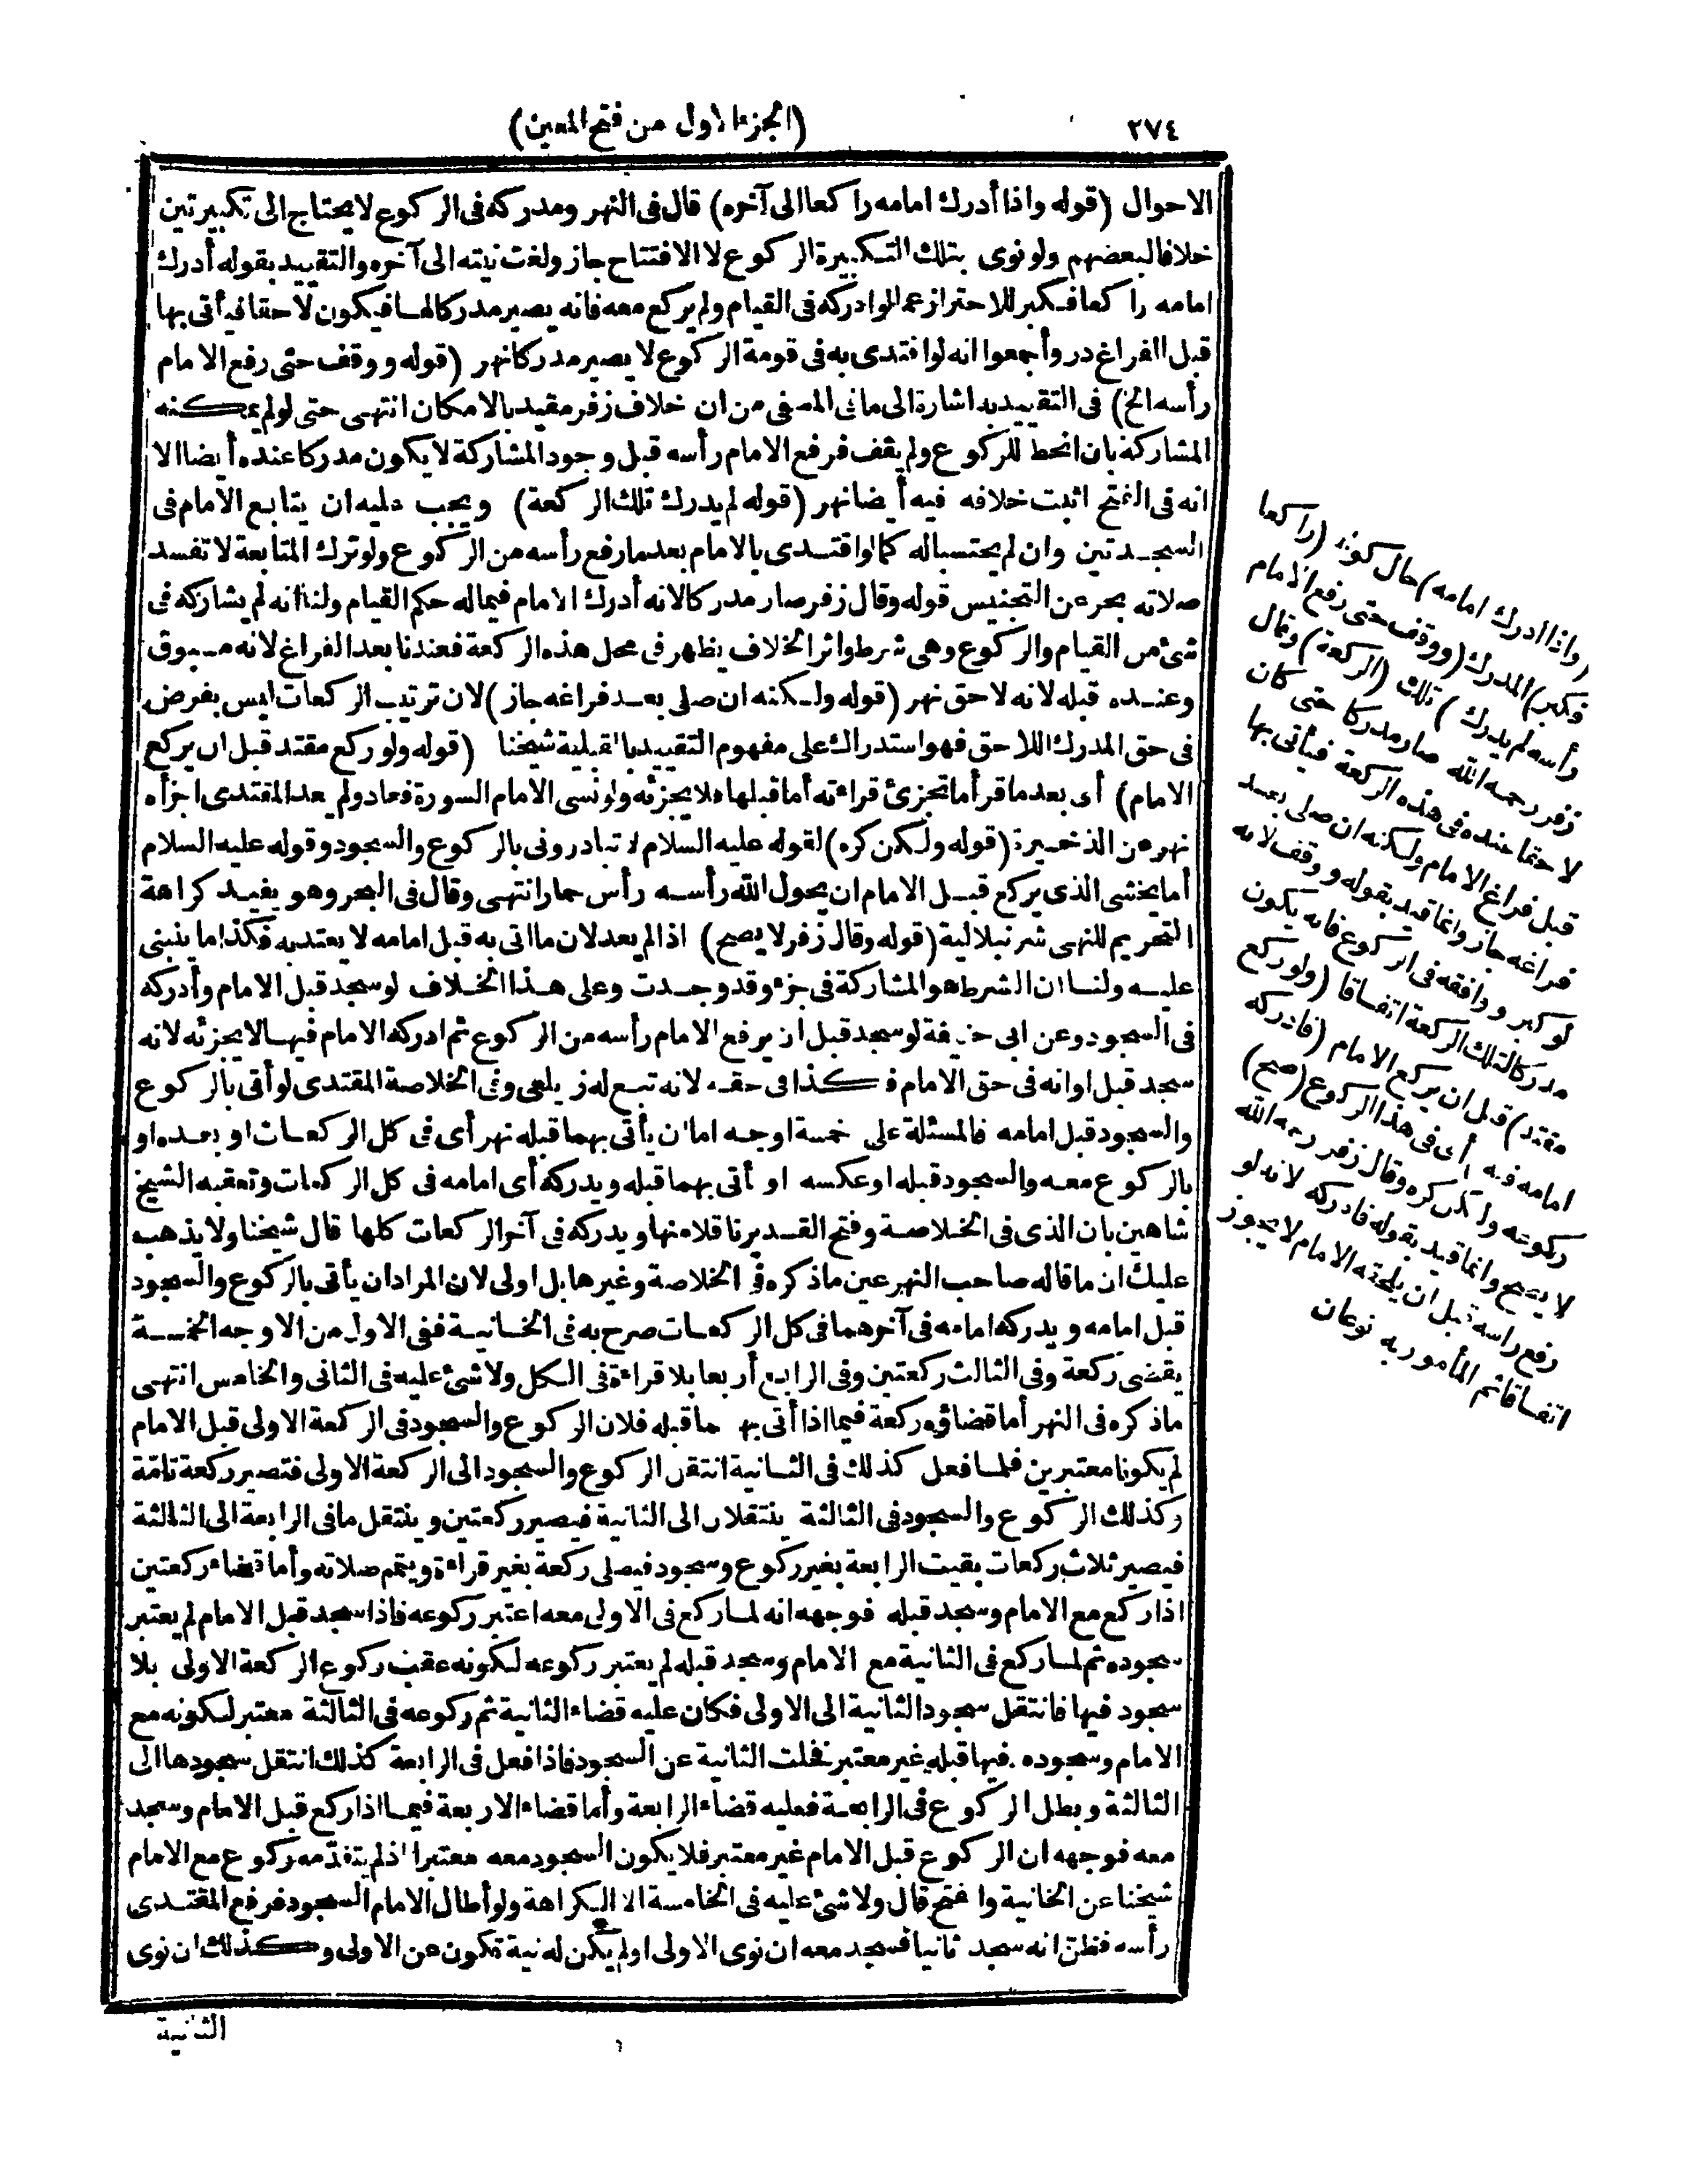 ٢٧٤
(الجزء الاول من فتح المعين)
الاحوال (قوله واذا أدرك امامه راكعا الى آخره) قال فى النهر ومدركه فى الركوع لا يحتاج الى تكبيرتين
خلافا لبعضهم ولو نوى بتلك التكبيرة الركوع لا الافتتاح جاز ولغت نيته الى آخره والتقييد بقوله أدرك
امامه راكعا فكبر للاحتراز عما لو ادركه فى القيام ولم يركع معه فانه يصير مدركا لها فيكون لاحقا فيأتى بها
قبل الفراغ در وأجمعوا انه لو اقتدى به فى قومة الركوع لا يصير مدركا نهر (قوله ووقف حتى رفع الامام
رأسه الخ) فى التقييد به اشارة الى ما فى المصفى من ان خلاف زفر مقيد بالامكان انتهى حتى لو لم يمكنه
المشاركة بان انحط للركوع ولم يقف فرفع الامام رأسه قبل وجود المشاركة لا يكون مدركا عنده أيضا الا
انه فى الفتح اثبت خلافه فيه أيضا نهر (قوله لم يدرك تلك الركعة) ويجب عليه ان يتابع الامام فى
السجدتين وان لم يحتسبا له كما لو اقتدى بالامام بعد ما رفع رأسه من الركوع ولو ترك المتابعة لا تفسد
صلاته بحر عن التجنيس قوله وقال زفر صار مدركا لانه أدرك الامام فيما له حكم القيام ولنا انه لم يشاركه فى
شئ من القيام والركوع وهى شرط واثر الخلاف يظهر فى محل هذه الركعة فعندنا بعد الفراغ لانه مسبوق
وعنده قبله لانه لاحق نهر (قوله ولكنه ان صلى بعد فراغه جاز) لان ترتيب الركعات ليس بفرض
فى حق المدرك اللاحق فهو استدراك على مفهوم التقييد بالقبلية شيخنا (قوله ولو ركع مقتد قبل ان يركع
الامام) أى بعد ما قرأ ما تجزئ قراءته أما قبلها فلا يجزئه ولو نسى الامام السورة فعاد ولم يعد المقتدى اجزأه
نهر عن الذخيرة (قوله ولكن كره) لقوله عليه السلام لا تبادرونى بالركوع والسجود وقوله عليه السلام
أما يخشى الذى يركع قبل الامام ان يحول الله رأسه رأس حمار انتهى وقال فى البحر وهو يفيد كراهة
التحريم للنهى شرنبلالية (قوله وقال زفر لا يصح) اذا لم يعد لان ما اتى به قبل امامه لا يعتد به فكذا ما ينبنى
عليه ولنا ان الشرط هو المشاركة فى جزء وقد وجدت وعلى هذا الخلاف لو سجد قبل الامام وأدركه
فى السجود وعن ابى حنيفة لو سجد قبل ان يرفع الامام رأسه من الركوع ثم ادركه الامام فيها لا يجزئه لانه
سجد قبل اوانه فى حق الامام فكذا فى حقه لانه تبع له زيلعى وفى الخلاصة المقتدى لو أتى بالركوع
والسجود قبل امامه فالمسئلة على خمسة اوجه اما ان يأتى بهما قبله نهر أى فى كل الركعات او بعده او
بالركوع معه والسجود قبله او عكسه او أتى بهما قبله ويدركه أى امامه فى كل الركعات وتعقبه الشيخ
شاهين بان الذى فى الخلاصة وفتح القدير ناقلا منها ويدركه فى آخر الركعات كلها قال شيخنا ولا يذهب
عليك ان ما قاله صاحب النهر عين ما ذكره فى الخلاصة وغيرها بل اولى لان المراد ان يأتى بالركوع والسجود
قبل امامه ويدركه امامه فى آخرهما فى كل الركعات صرح به فى الخانية ففى الاول من الاوجه الخمسة
يقضى ركعة وفى الثالث ركعتين وفى الرابع أربعا بلا قراءة فى الكل ولا شئ عليه فى الثانى والخامس انتهى
ما ذكره فى النهر أما قضاؤه ركعة فيما اذا أتى بهما قبله فلان الركوع والسجود فى الركعة الاولى قبل الامام
لم يكونا معتبرين فلما فعل كذلك فى الثانية انتقل الركوع والسجود الى الركعة الاولى فتصير ركعة تامة
وكذلك الركوع والسجود فى الثالثة ينتقلان الى الثانية فيصير ركعتين وينتقل ما فى الرابعة الى الثالثة
فيصير ثلاث ركعات بقيت الرابعة بغير ركوع وسجود فيصلى ركعة بغير قراءة ويتم صلاته وأما قضاء ركعتين
اذا ركع مع الامام وسجد قبله فوجهه انه لما ركع فى الاولى معه اعتبر ركوعه فاذا سجد قبل الامام لم يعتبر
سجوده ثم لما ركع فى الثانية مع الامام وسجد قبله لم يعتبر ركوعه لكونه عقب ركوع الركعة الاولى بلا
سجود فيها فانتقل سجود الثانية الى الاولى فكان عليه قضاء الثانية ثم ركوعه فى الثالثة معتبر لكونه مع
الامام وسجوده فيها قبله غير معتبر فخلت الثانية عن السجود فاذا فعل فى الرابعة كذلك انتقل سجودها الى
الثالثة وبطل الركوع فى الرابعة فعليه قضاء الرابعة وأما قضاء الاربعة فيما اذا ركع قبل الامام وسجد
معه فوجهه ان الركوع قبل الامام غير معتبر فلا يكون السجود معه معتبرا اذ لم يتقدمه ركوع مع الامام
شيخنا عن الخانية والفتح قال ولا شئ عليه فى الخامسة الا الكراهة ولو أطال الامام السجود فرفع المقتدى
رأسه فظن انه سجد ثانيا فسجد معه ان نوى الاولى او لم يكن له نية تكون عن الاولى وكذلك ان نوى
الثانية
(واذا أدرك امامه) حال كونه (راكعا
فكبر) المدرك (ووقف حتى رفع الامام
رأسه لم يدرك) تلك (الركعة) وقال
زفر رحمه الله صار مدركا حتى كان
لاحقا عنده فى هذه الركعة فيأتى بها
قبل فراغ الامام ولكنه ان صلى بعد
فراغه جاز وانما قيد بقوله ووقف لانه
لو كبر ووافقه فى الركوع فانه يكون
مدركا لتلك الركعة اتفاقا (ولو ركع
مقتد) قبل ان يركع الامام (فادركه
امامه فيه) أى فى هذا الركوع (صح)
ركوعه ولكن كره وقال زفر رحمه الله
لا يصح وانما قيد بقوله فادركه لانه لو
رفع رأسه قبل ان يلحقه الامام لا يجوز
اتفاقا ثم المأمور به نوعان